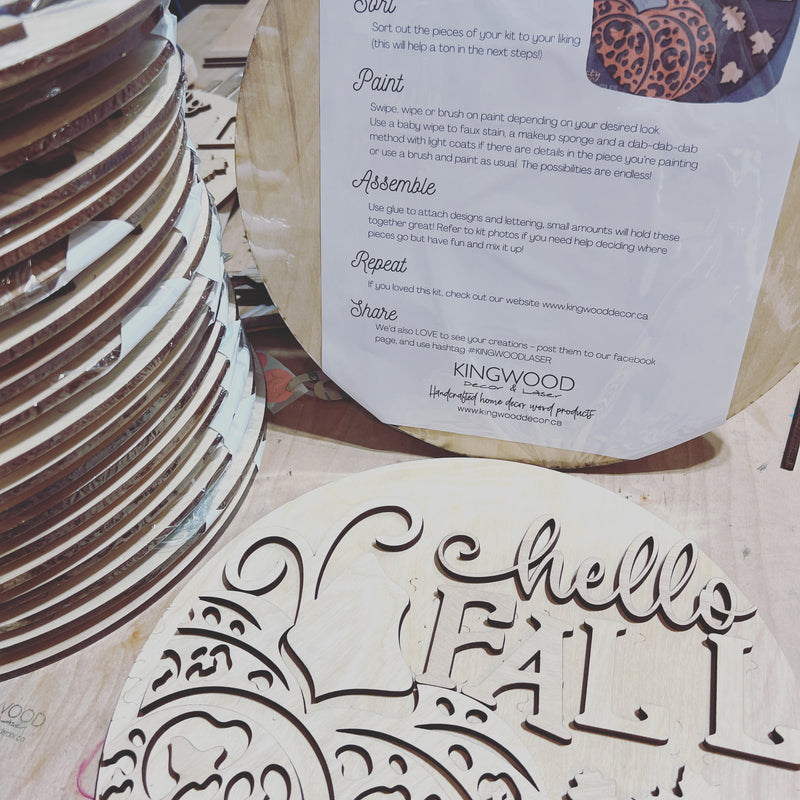 Sort
Sort out the pieces of your kit to your liking
(this will help a ton in the next steps!)
Paint
Swipe, wipe or brush on paint depending on your desired look.
Use a baby wipe to faux stain, a makeup sponge and a dab-dab-dab
method with light coats if there are details in the piece you're painting
or use a brush and paint as usual. The possibilities are endless!
Assemble
Use glue to attach designs and lettering, small amounts will hold these
together great! Refer to kit photos if you need help deciding where
pieces go but have fun and mix it up!
Repeat
If you loved this kit, check out our website www.kingwooddecor.ca
Share
We'd also LOVE to see your creations - post them to our facebook
page, and use hashtag #KINGWOODLASER
KINGWOOD
Decor & Laser
Handcrafted home decor word products
www.kingwooddecor.ca
hello
FALL